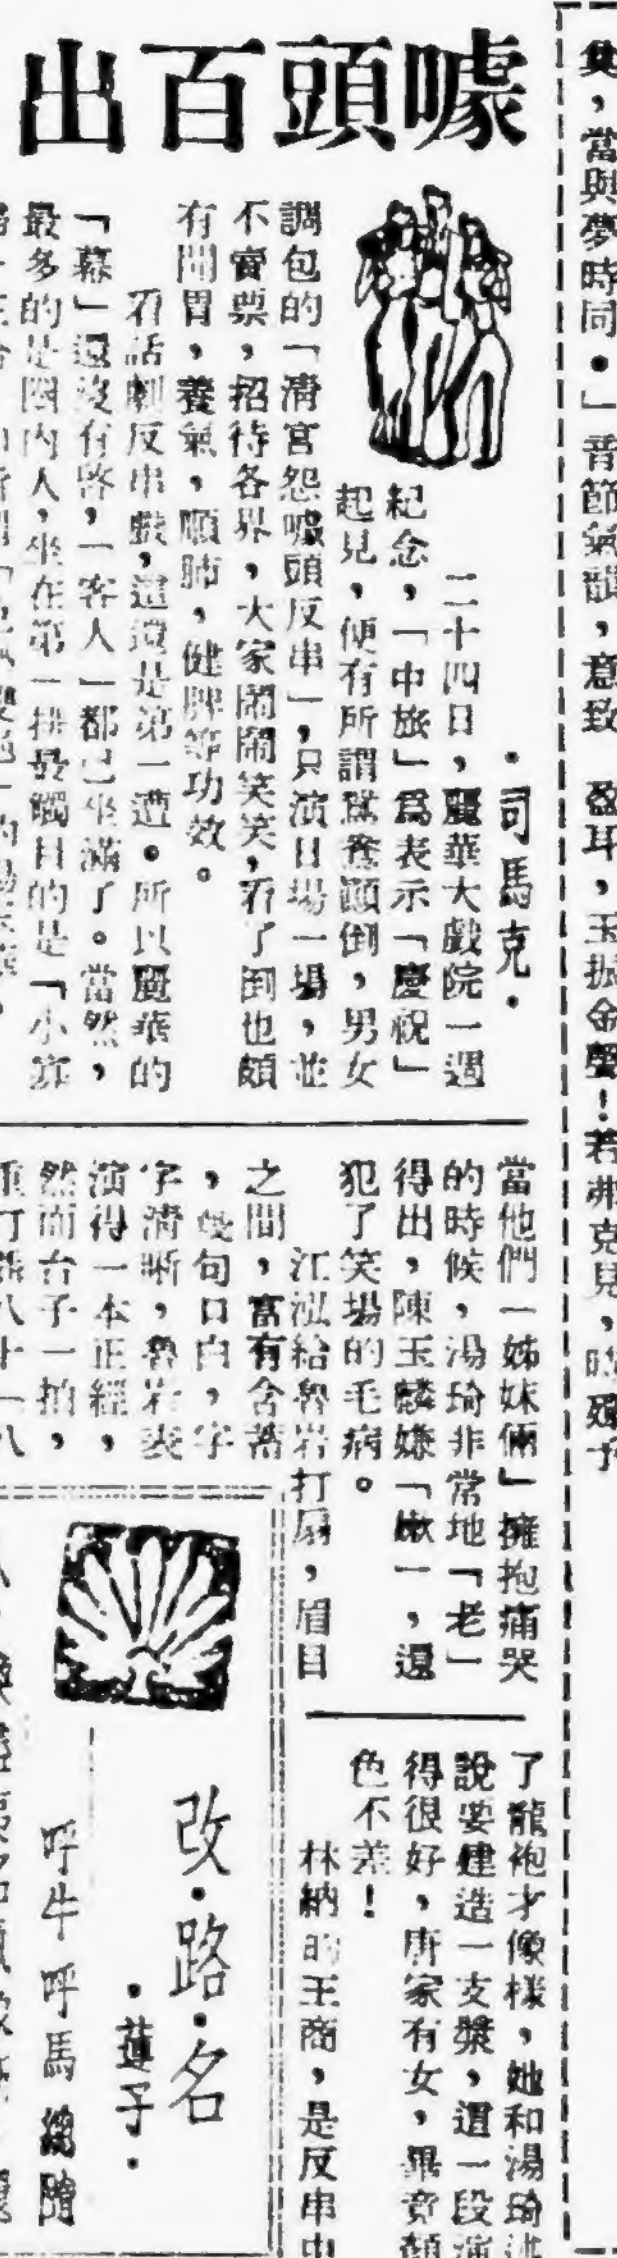 當與夢時同。」音節氣韻，意致
盈耳，玉振金聲！若弗克見，
噱頭百出
·司馬克·
二十四日，麗華大戲院一週
紀念，「中旅」爲表示「慶祝」
起見，便有所謂鴛鴦顚倒，男女
調包的「清宮怨噱頭反串」，只演日場一場，並
不賣票，招待各界，大家鬧鬧笑笑，看了倒也頗
有開胃，養氣，順肺，健脾等功效。
看話劇反串戲，這還是第一遭。所以麗華的
「幕」還沒有啓，一客人一都已坐滿了。當然，
最多的是圈内人，坐在第一排最觸目的是「小
當他們一姊妹倆」擁抱痛哭
的時候，湯琦非常地「老」
得出，陳玉麟嫌「嫩一，還
犯了笑場的毛病。
江泓給魯岩打扇，眉目
之間，富有含蓄
，幾句口白，字
字清晰，魯岩表
演得一本正經，
然而台子一拍，
了龍袍才像樣，她和湯琦
說要建造一支槳，這一段演
得很好，唐家有女，畢竟頗
色不差！
林納的王商，是反串中
改·路·名
·蓮子·
呼牛呼馬總隨